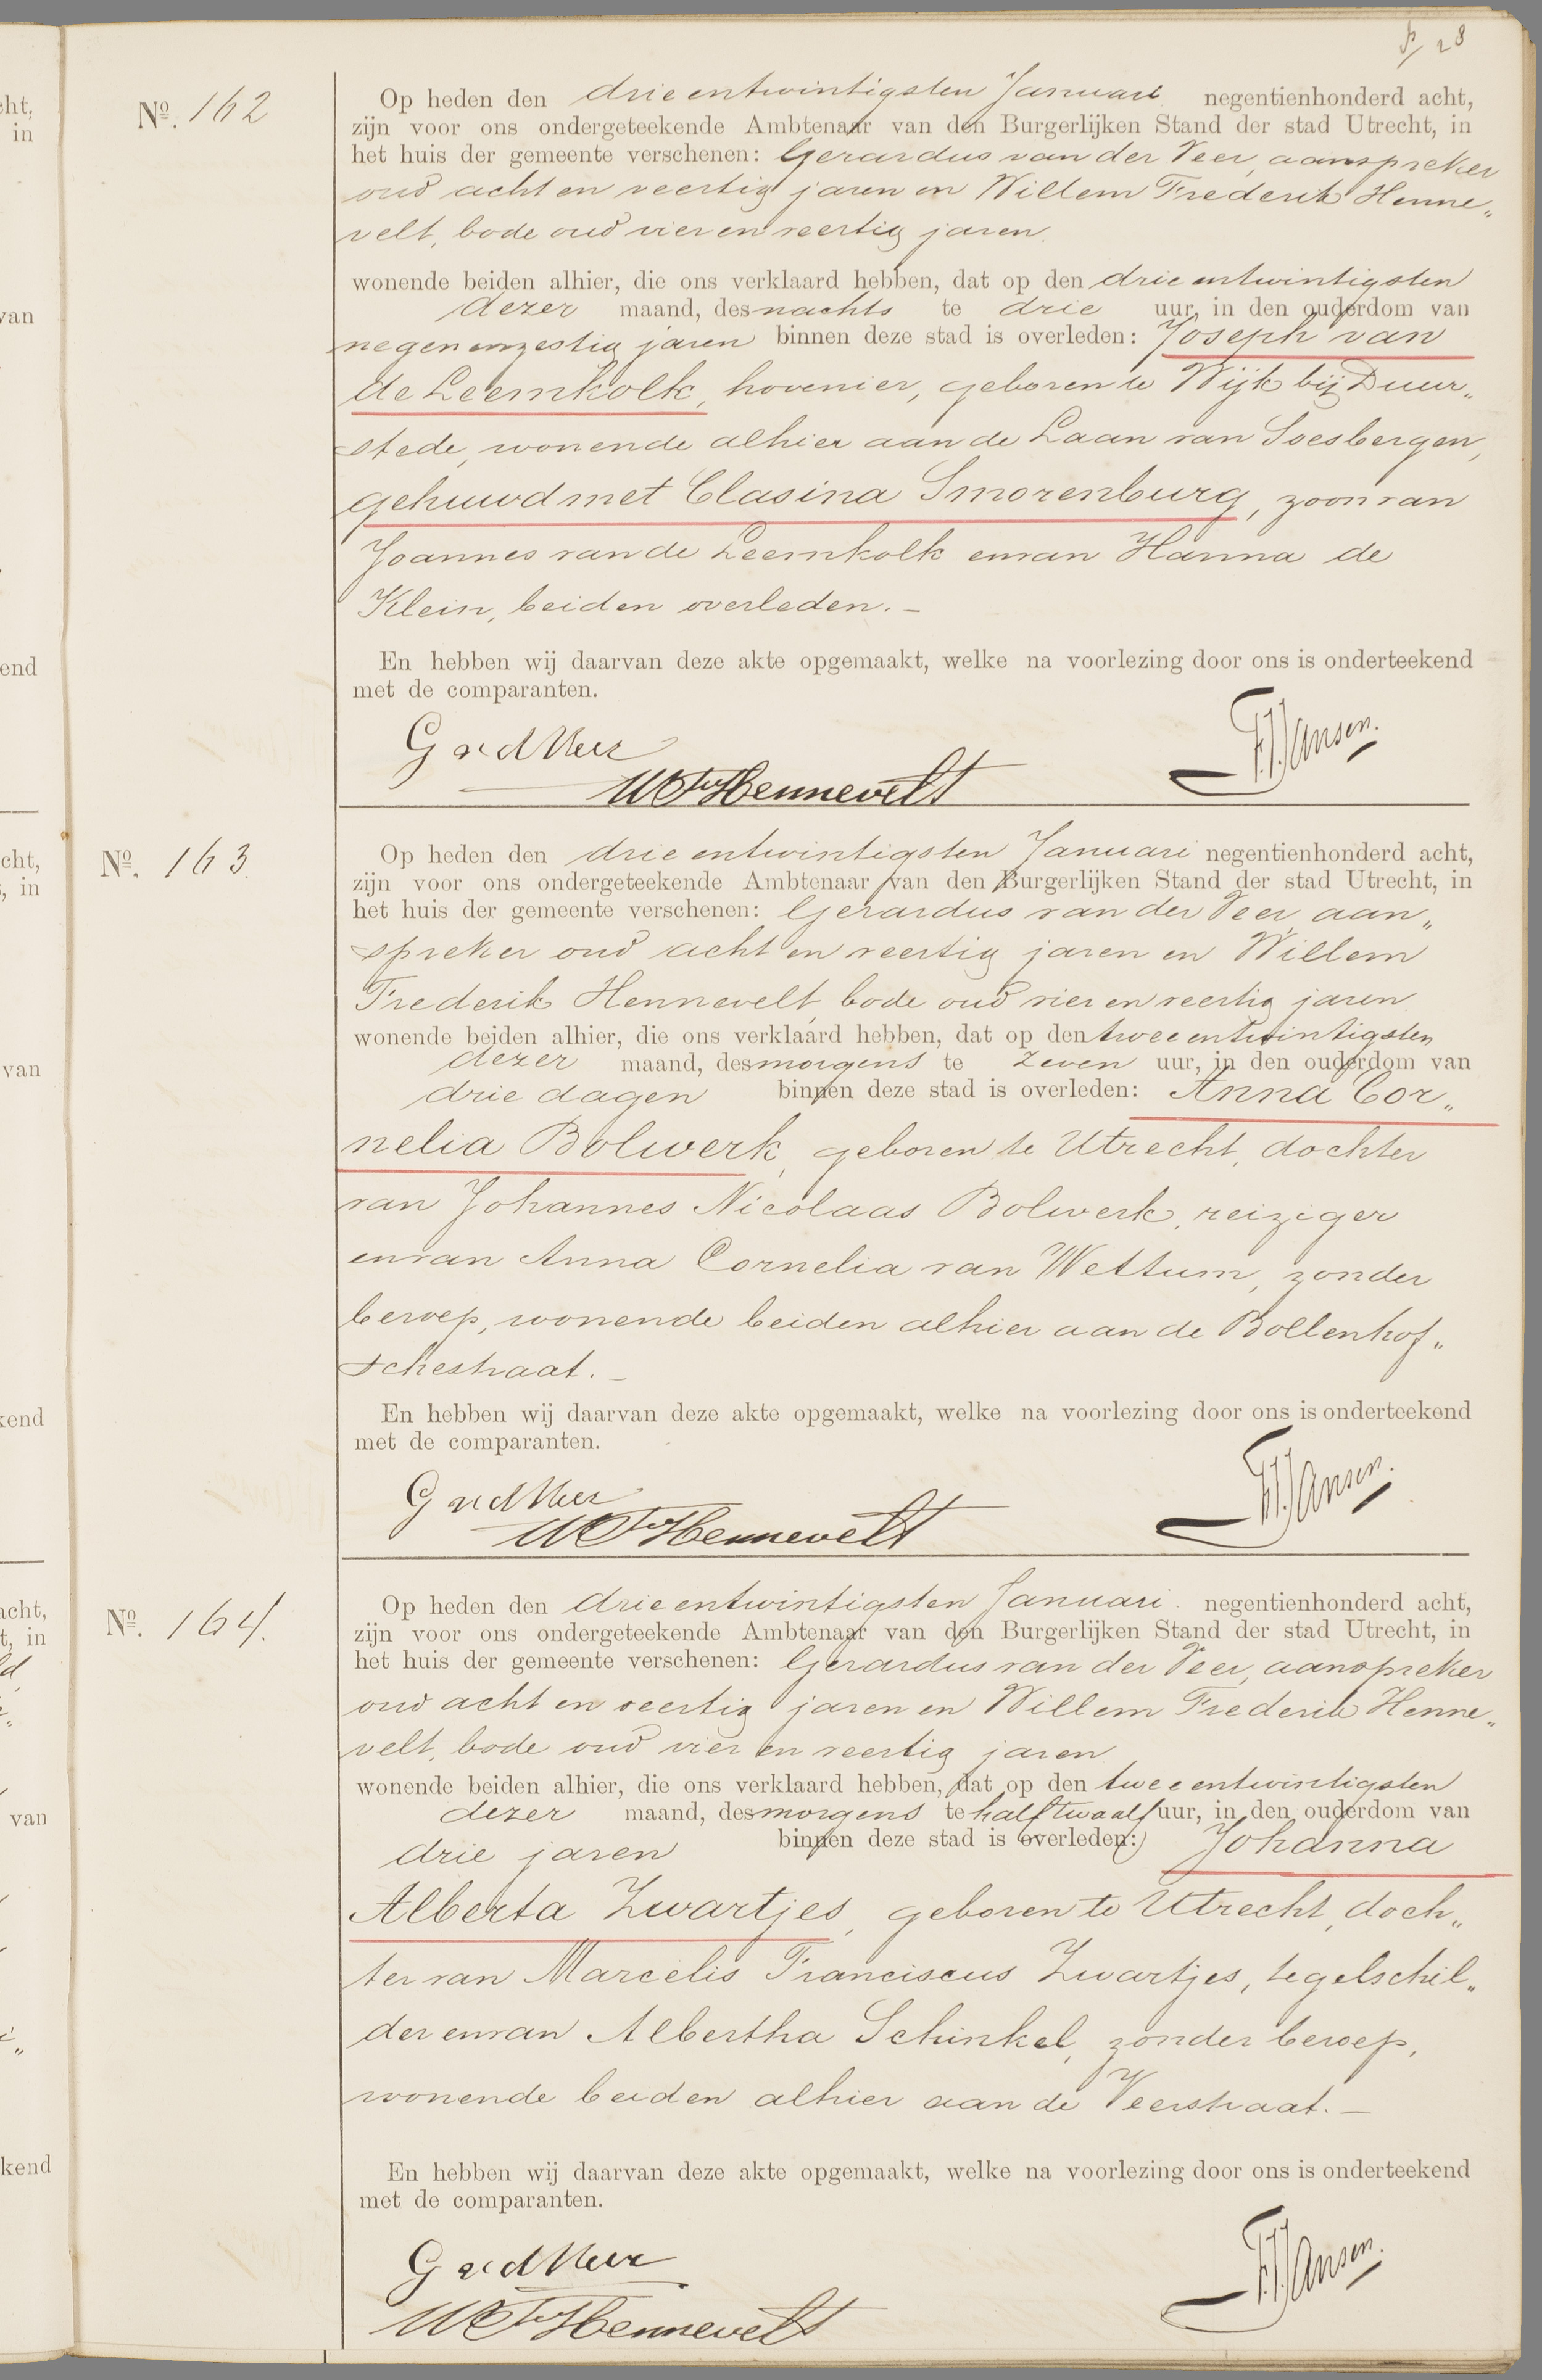 28
No. 162
Op heden den drieentwintigsten Januari negentienhonderd acht,
zijn voor ons ondergeteekende Ambtenaar van den Burgerlijken Stand der stad Utrecht, in
het huis der gemeente verschenen: Gerardus van der Veer, aanspreker
oud acht en veertig jaren en Willem Frederik Henne„
velt, bode oud vier en veertig jaren
wonende beiden alhier, die ons verklaard hebben, dat op den drieentwintigsten
dezer maand, des nachts te drie uur, in den ouderdom van
negenenzestig jaren binnen deze stad is overleden: Joseph van
de Leemkolk, hovenier, geboren te Wijk bij Duur„
stede, wonende alhier aan de Laan van Soesbergen,
gehuwd met Clasina Smorenburg, zoon van
Joannes van de Leemkolk en van Hanna de
Klein, beiden overleden.–
En hebben wij daarvan deze akte opgemaakt, welke na voorlezing door ons is onderteekend
met de comparanten.
G vd Veer
WF Hennevelt
Jansen.
No. 163
Op heden den drieentwintigsten Januari negentienhonderd acht,
zijn voor ons ondergeteekende Ambtenaar van den Burgerlijken Stand der stad Utrecht, in
het huis der gemeente verschenen: Gerardus van der Veer, aan„
spreker oud acht en veertig jaren en Willem
Frederik Hennevelt, bode oud vier en veertig jaren
wonende beiden alhier, die ons verklaard hebben, dat op den tweeentwintigsten
dezer maand, des morgens te zeven uur, in den ouderdom van
drie dagen binnen deze stad is overleden: Anna Cor„
nelia Bolwerk, geboren te Utrecht, dochter
van Johannes Nicolaas Bolwerk, reiziger
en van Anna Cornelia van Wettum, zonder
beroep, wonende beiden alhier aan de Bollenhof„
schestraat.–
En hebben wij daarvan deze akte opgemaakt, welke na voorlezing door ons is onderteekend
met de comparanten.
G vd Veer
WF Hennevelt
Jansen.
No. 164.
Op heden den drieentwintigsten Januari negentienhonderd acht,
zijn voor ons ondergeteekende Ambtenaar van den Burgerlijken Stand der stad Utrecht, in
het huis der gemeente verschenen: Gerardus van der Veer, aanspreker
oud acht en veertig jaren en Willem Frederik Henne„
velt, bode oud vier en veertig jaren
wonende beiden alhier, die ons verklaard hebben, dat op den tweeentwintigsten
dezer maand, des morgens te half twaalf uur, in den ouderdom van
drie jaren binnen deze stad is overleden: Johanna
Alberta Zwartjes, geboren te Utrecht, doch„
ter van Marcelis Franciscus Zwartjes, tegelschil„
der en van Albertha Schinkel, zonder beroep,
wonende beiden alhier aan de Veerstraat.–
En hebben wij daarvan deze akte opgemaakt, welke na voorlezing door ons is onderteekend
met de comparanten.
G vd Veer
WF Hennevelt
Jansen.